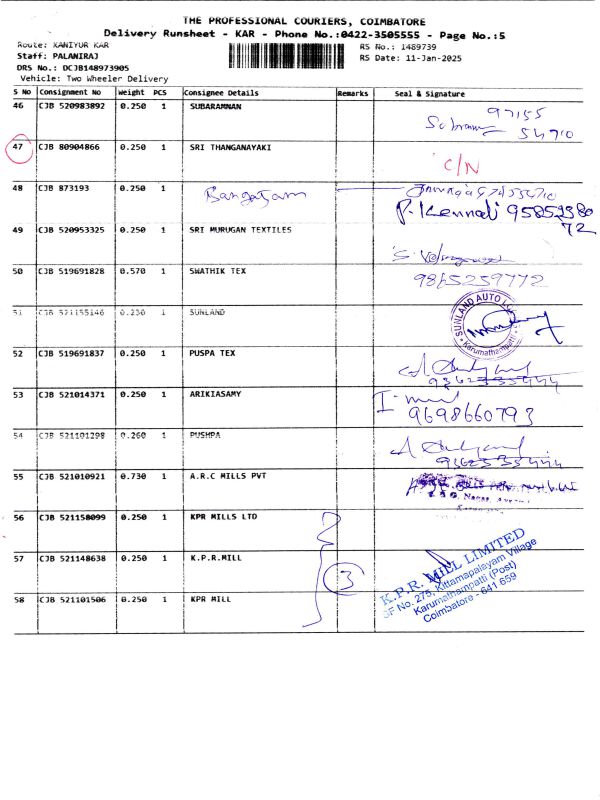 THE PROFESSIONAL COURIERS, COIMBATORE
Delivery Runsheet - KAR - Phone No.:0422-3505555 - Page No.:5
Route: KANIYUR KAR
RS No.: 1489739
Staff: PALANIRAJ
RS Date: 11-Jan-2025
DRS No.: DCJB148973905
Vehicle: Two Wheeler Delivery
S No Consignment No Weight PCS Consignee Details Remarks Seal & Signature
46 CJB 520983892 0.250 1 SUBARAMNAN
97155
54710
47 CJB 80904866 0.250 1 SRI THANGANAYAKI
C/N
48 CJB 873193 0.250 1
P. Kennadi 9585238072
49 CJB 520953325 0.250 1 SRI MURUGAN TEXTILES
50 CJB 519691828 0.570 1 SWATHIK TEX
9865259772
51 CJB 521155146 0.230 1 SUNLAND
SUNLAND AUTO
Karumathampatti
52 CJB 519691837 0.250 1 PUSPA TEX
9362335444
53 CJB 521014371 0.250 1 ARIKIASAMY
9698660793
54 CJB 521101298 0.260 1 PUSHPA
9362335444
55 CJB 521010921 0.730 1 A.R.C MILLS PVT
56 CJB 521158099 0.250 1 KPR MILLS LTD
57 CJB 521148638 0.250 1 K.P.R.MILL
3
58 CJB 521101506 0.250 1 KPR MILL
K.P.R. MILL LIMITED
SF No. 275, Kittampalayam Village
Karumathampatti (Post)
Coimbatore - 641 659